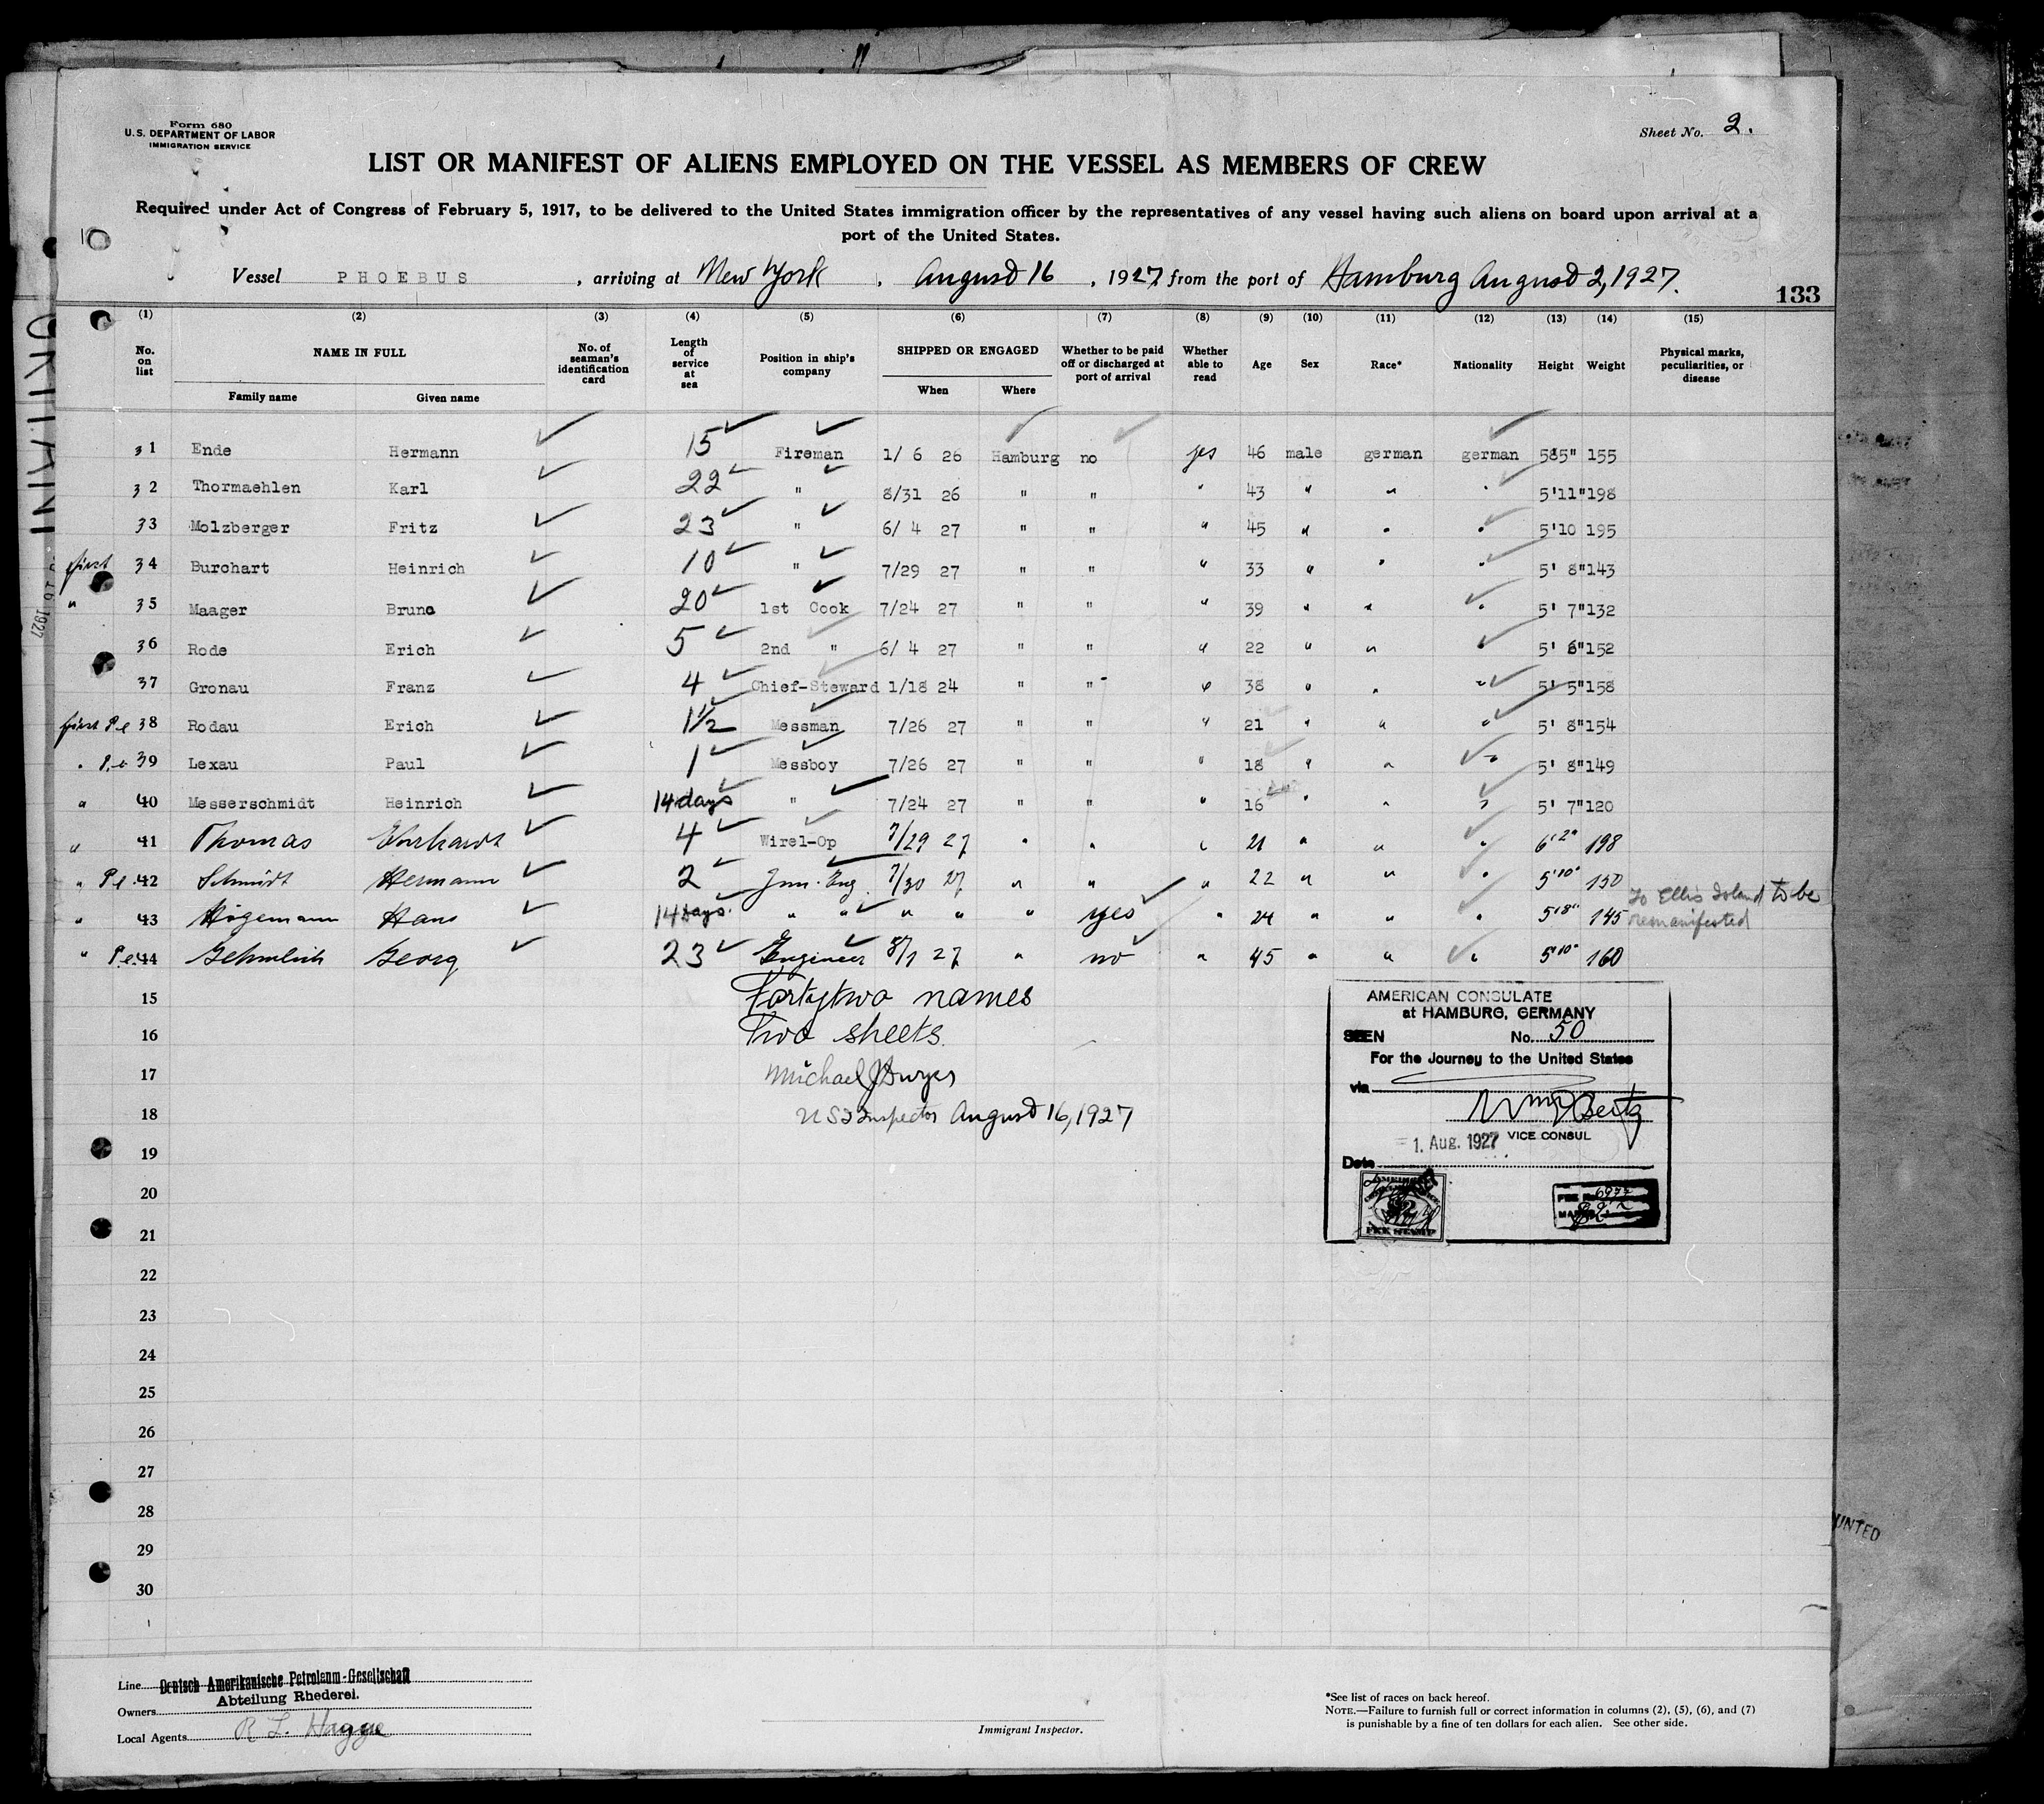 Form 680
U.S. DEPARTMENT OF LABOR
IMMIGRATION SERVICE
Sheet No. 2.
LIST OR MANIFEST OF ALIENS EMPLOYED ON THE VESSEL AS MEMBERS OF CREW
Required under Act of Congress of February 5, 1917, to be delivered to the United States immigration officer by the representatives of any vessel having such aliens on board upon arrival at a
port of the United States.
Vessel PHOEBUS, arriving at New York, August 16, 1927, from the port of Hamburg August 2, 1927.
133
(1) (2) (3) (4) (5) (6) (7) (8) (9) (10) (11) (12) (13) (14) (15)
No. on list NAME IN FULL Family name Given name No. of seaman's identification card Length of service at sea Position in ship's company SHIPPED OR ENGAGED When Where Whether to be paid off or discharged at port of arrival Whether able to read Age Sex Race* Nationality Height Weight Physical marks, peculiarities, or disease
31 Ende Hermann 15 Fireman 1/ 6 26 Hamburg no yes 46 male german german 5'5" 155
32 Thormaehlen Karl 22 " 8/31 26 " " " 43 " " " 5'11" 198
33 Molzberger Fritz 23 " 6/ 4 27 " " " 45 " " " 5'10 195
first 34 Burchart Heinrich 10 " 7/29 27 " " " 33 " " " 5' 8" 143
" 35 Maager Bruno 20 1st Cook 7/24 27 " " " 39 " " " 5' 7" 132
36 Rode Erich 5 2nd " 6/ 4 27 " " " 22 " " " 5' 6" 152
37 Gronau Franz 4 Chief-Steward 1/18 24 " " " 38 " " " 5' 5" 158
first P.l 38 Rodau Erich 1½ Messman 7/26 27 " " " 21 " " " 5' 8" 154
" P.l 39 Lexau Paul 1 Messboy 7/26 27 " " " 18 " " " 5' 8" 149
" 40 Messerschmidt Heinrich 14 days " 7/24 27 " " " 16 " " " 5' 7" 120
" 41 Thomas 4 Wirel-Op 7/29 27 " " " 21 " " " 6'2" 198
" P.l. 42 Schmidt Hermann 2 Jun. Eng. 7/30 27 " " " 22 " " " 5'10" 150
" 43 Högemann Hans 14 days. " " " " " yes " 24 " " " 5'8" 145 To Ellis Island to be
remanifested
" P.l. 44 Georg 23 Engineer 8/1 27 " no " 45 " " " 5'10" 160
15 Fortytwo names
16 Two sheets.
17 Michael J Dwyer
18 U S I Inspector August 16, 1927
19
20
21
22
23
24
25
26
27
28
29
30
AMERICAN CONSULATE
at HAMBURG, GERMANY
SEEN No. 50
For the Journey to the United States
via
VICE CONSUL
Date 1. Aug. 1927
FEE STAMP
Line Deutsch Amerikanische Petroleum-Gesellschaft
Abteilung Rhederei.
Owners
Local Agents R L. Hagge
Immigrant Inspector.
*See list of races on back hereof.
NOTE.—Failure to furnish full or correct information in columns (2), (5), (6), and (7)
is punishable by a fine of ten dollars for each alien. See other side.